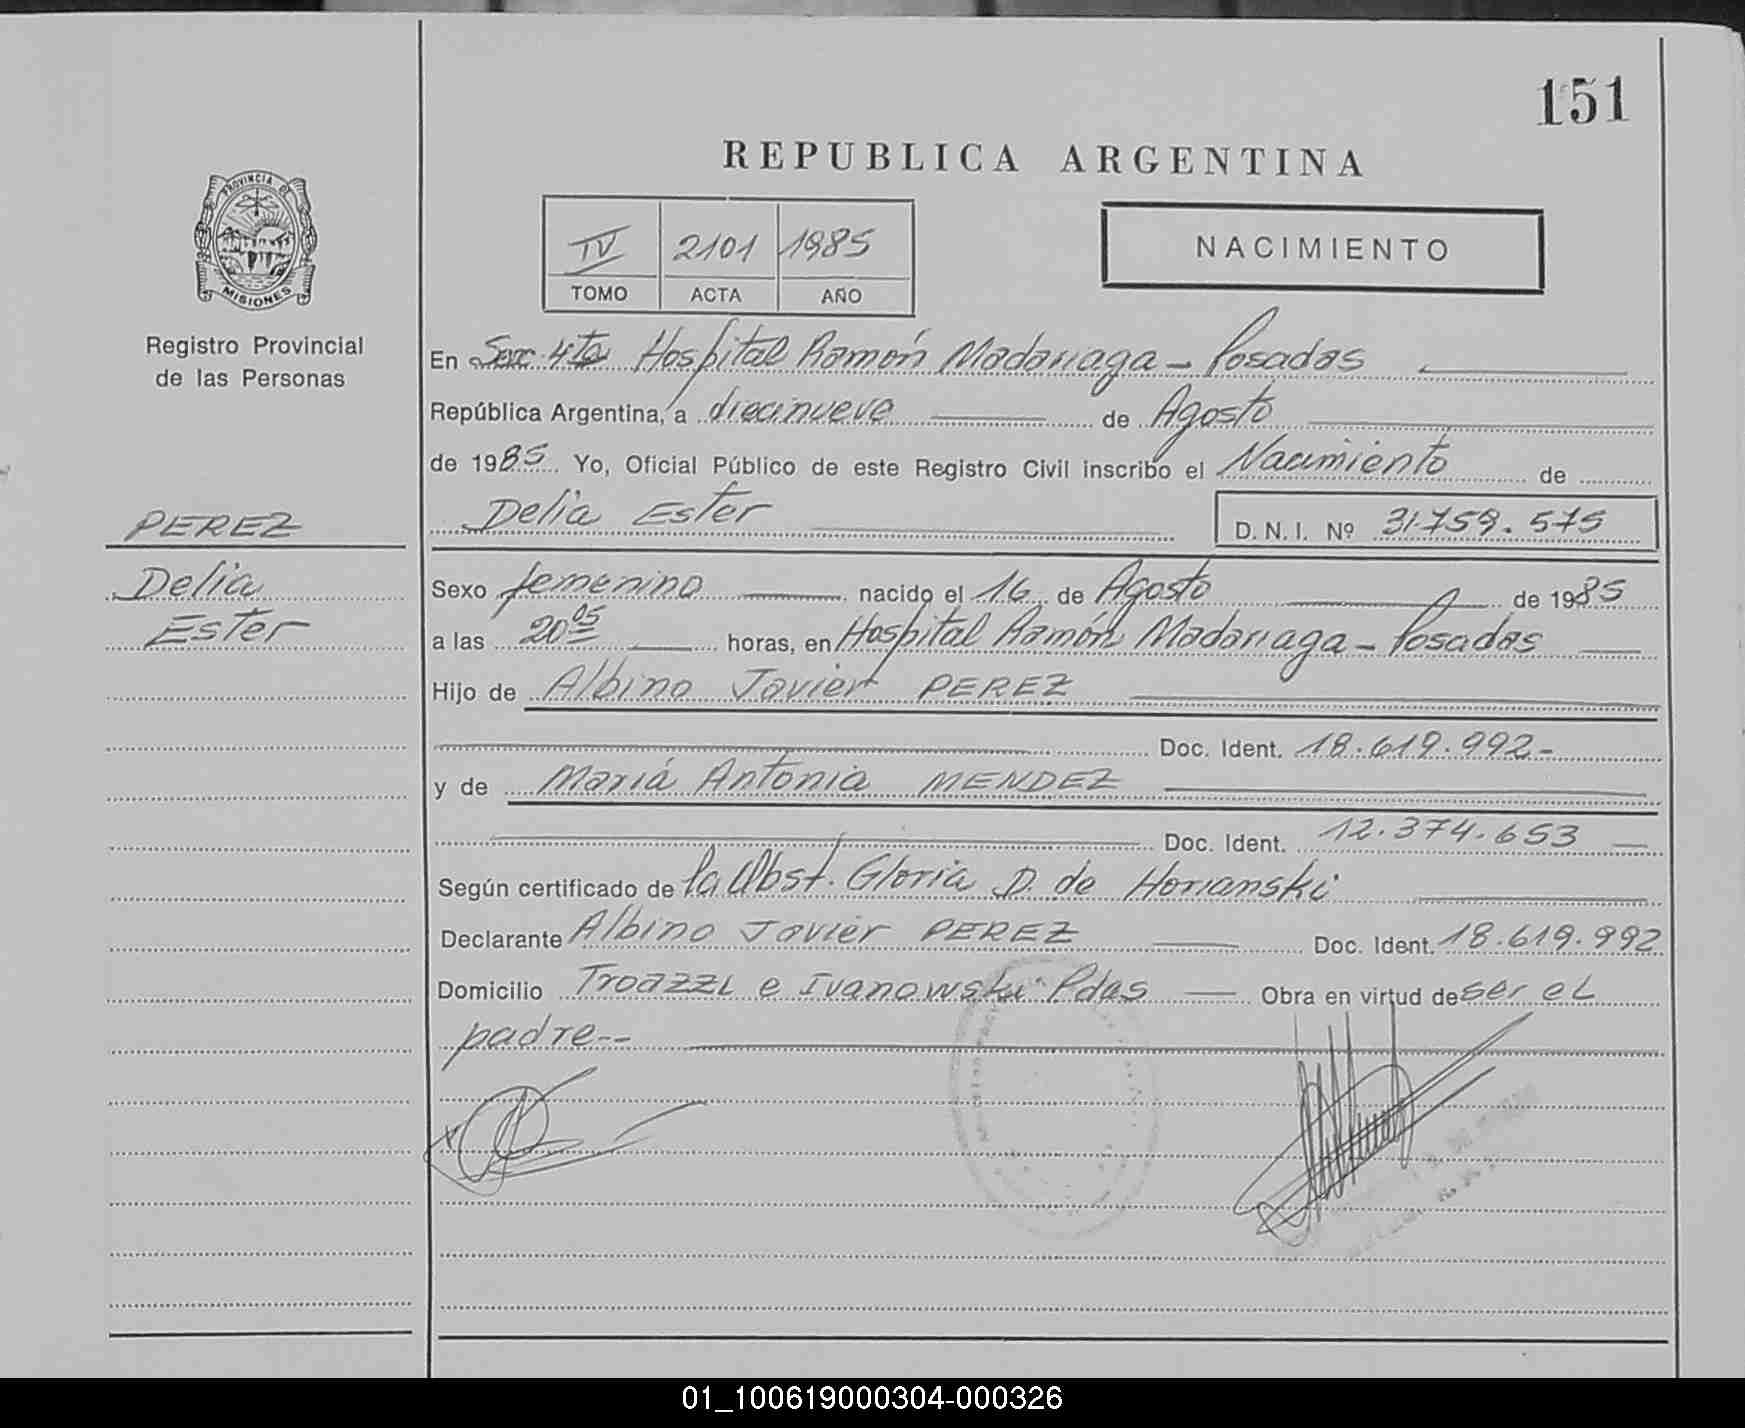 151
REPUBLICA ARGENTINA
PROVINCIA DE
MISIONES
IV 2101 1985
TOMO ACTA AÑO
NACIMIENTO
Registro Provincial
de las Personas
En Secc. 4ta Hospital Ramón Madariaga - Posadas
República Argentina, a diecinueve de Agosto
de 1985 Yo, Oficial Público de este Registro Civil inscribo el Nacimiento de
Delia Ester D. N. I. Nº 31.759.575
PEREZ
Delia
Ester
Sexo femenino nacido el 16 de Agosto de 1985
a las 20 05 horas, en Hospital Ramón Madariaga - Posadas
Hijo de Albino Javier PEREZ
Doc. Ident. 18.619.992-
y de María Antonia MENDEZ
Doc. Ident. 12.374.653
Según certificado de la Obst. Gloria D. de Horianski
Declarante Albino Javier PEREZ Doc. Ident. 18.619.992
Domicilio Troazzi e Ivanowski Pdas Obra en virtud de ser el
padre--
01_100619000304-000326